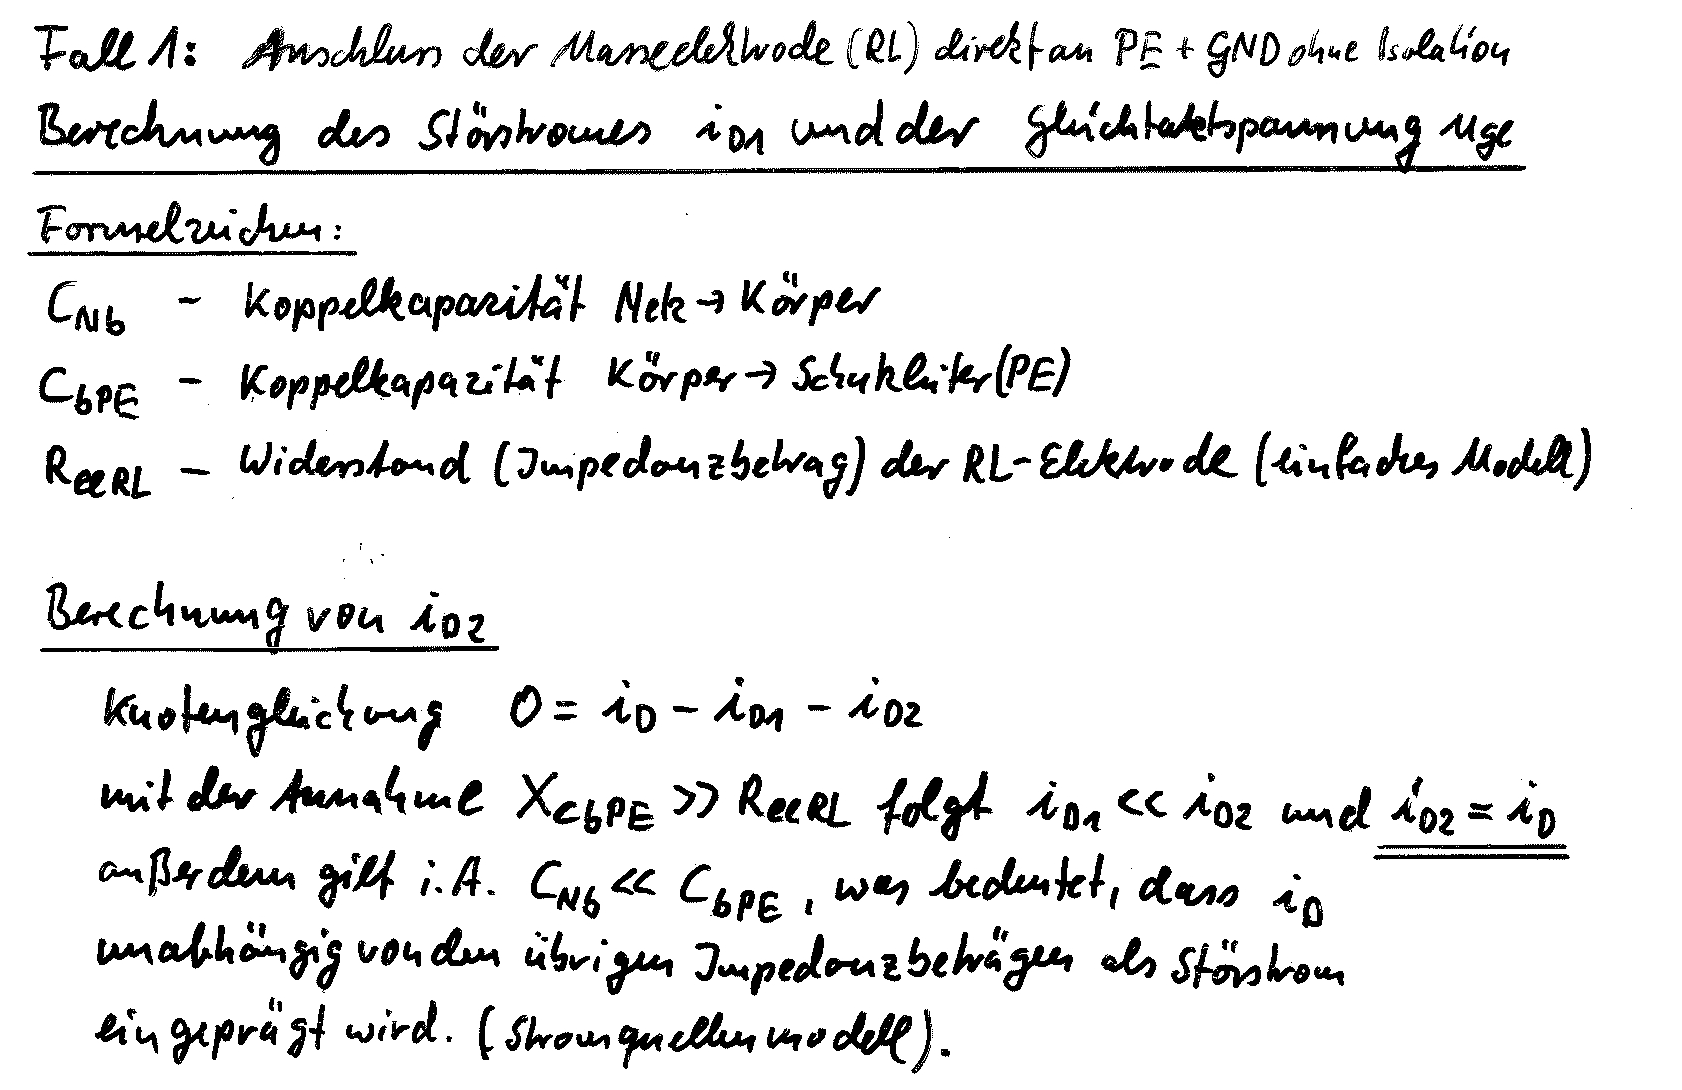 Fall 1: Anschluss der Masseelektrode (RL) direkt an PE + GND ohne Isolation
Berechnung des Störstromes iD1 und der Gleichtaktspannung uge
Formelzeichen:
CNb – Koppelkapazität Netz → Körper
CbPE – Koppelkapazität Körper → Schutzleiter (PE)
ReeRL – Widerstand (Impedanzbetrag) der RL-Elektrode (einfaches Modell)
Berechnung von iD2
Knotengleichung 0 = iD – iD1 – iD2
mit der Annahme XCbPE >> ReeRL folgt iD1 << iD2 und iD2 = iD
außerdem gilt i.A. CNb << CbPE, was bedeutet, dass iD
unabhängig von den übrigen Impedanzbeträgen als Störstrom
eingeprägt wird. (Stromquellenmodell).